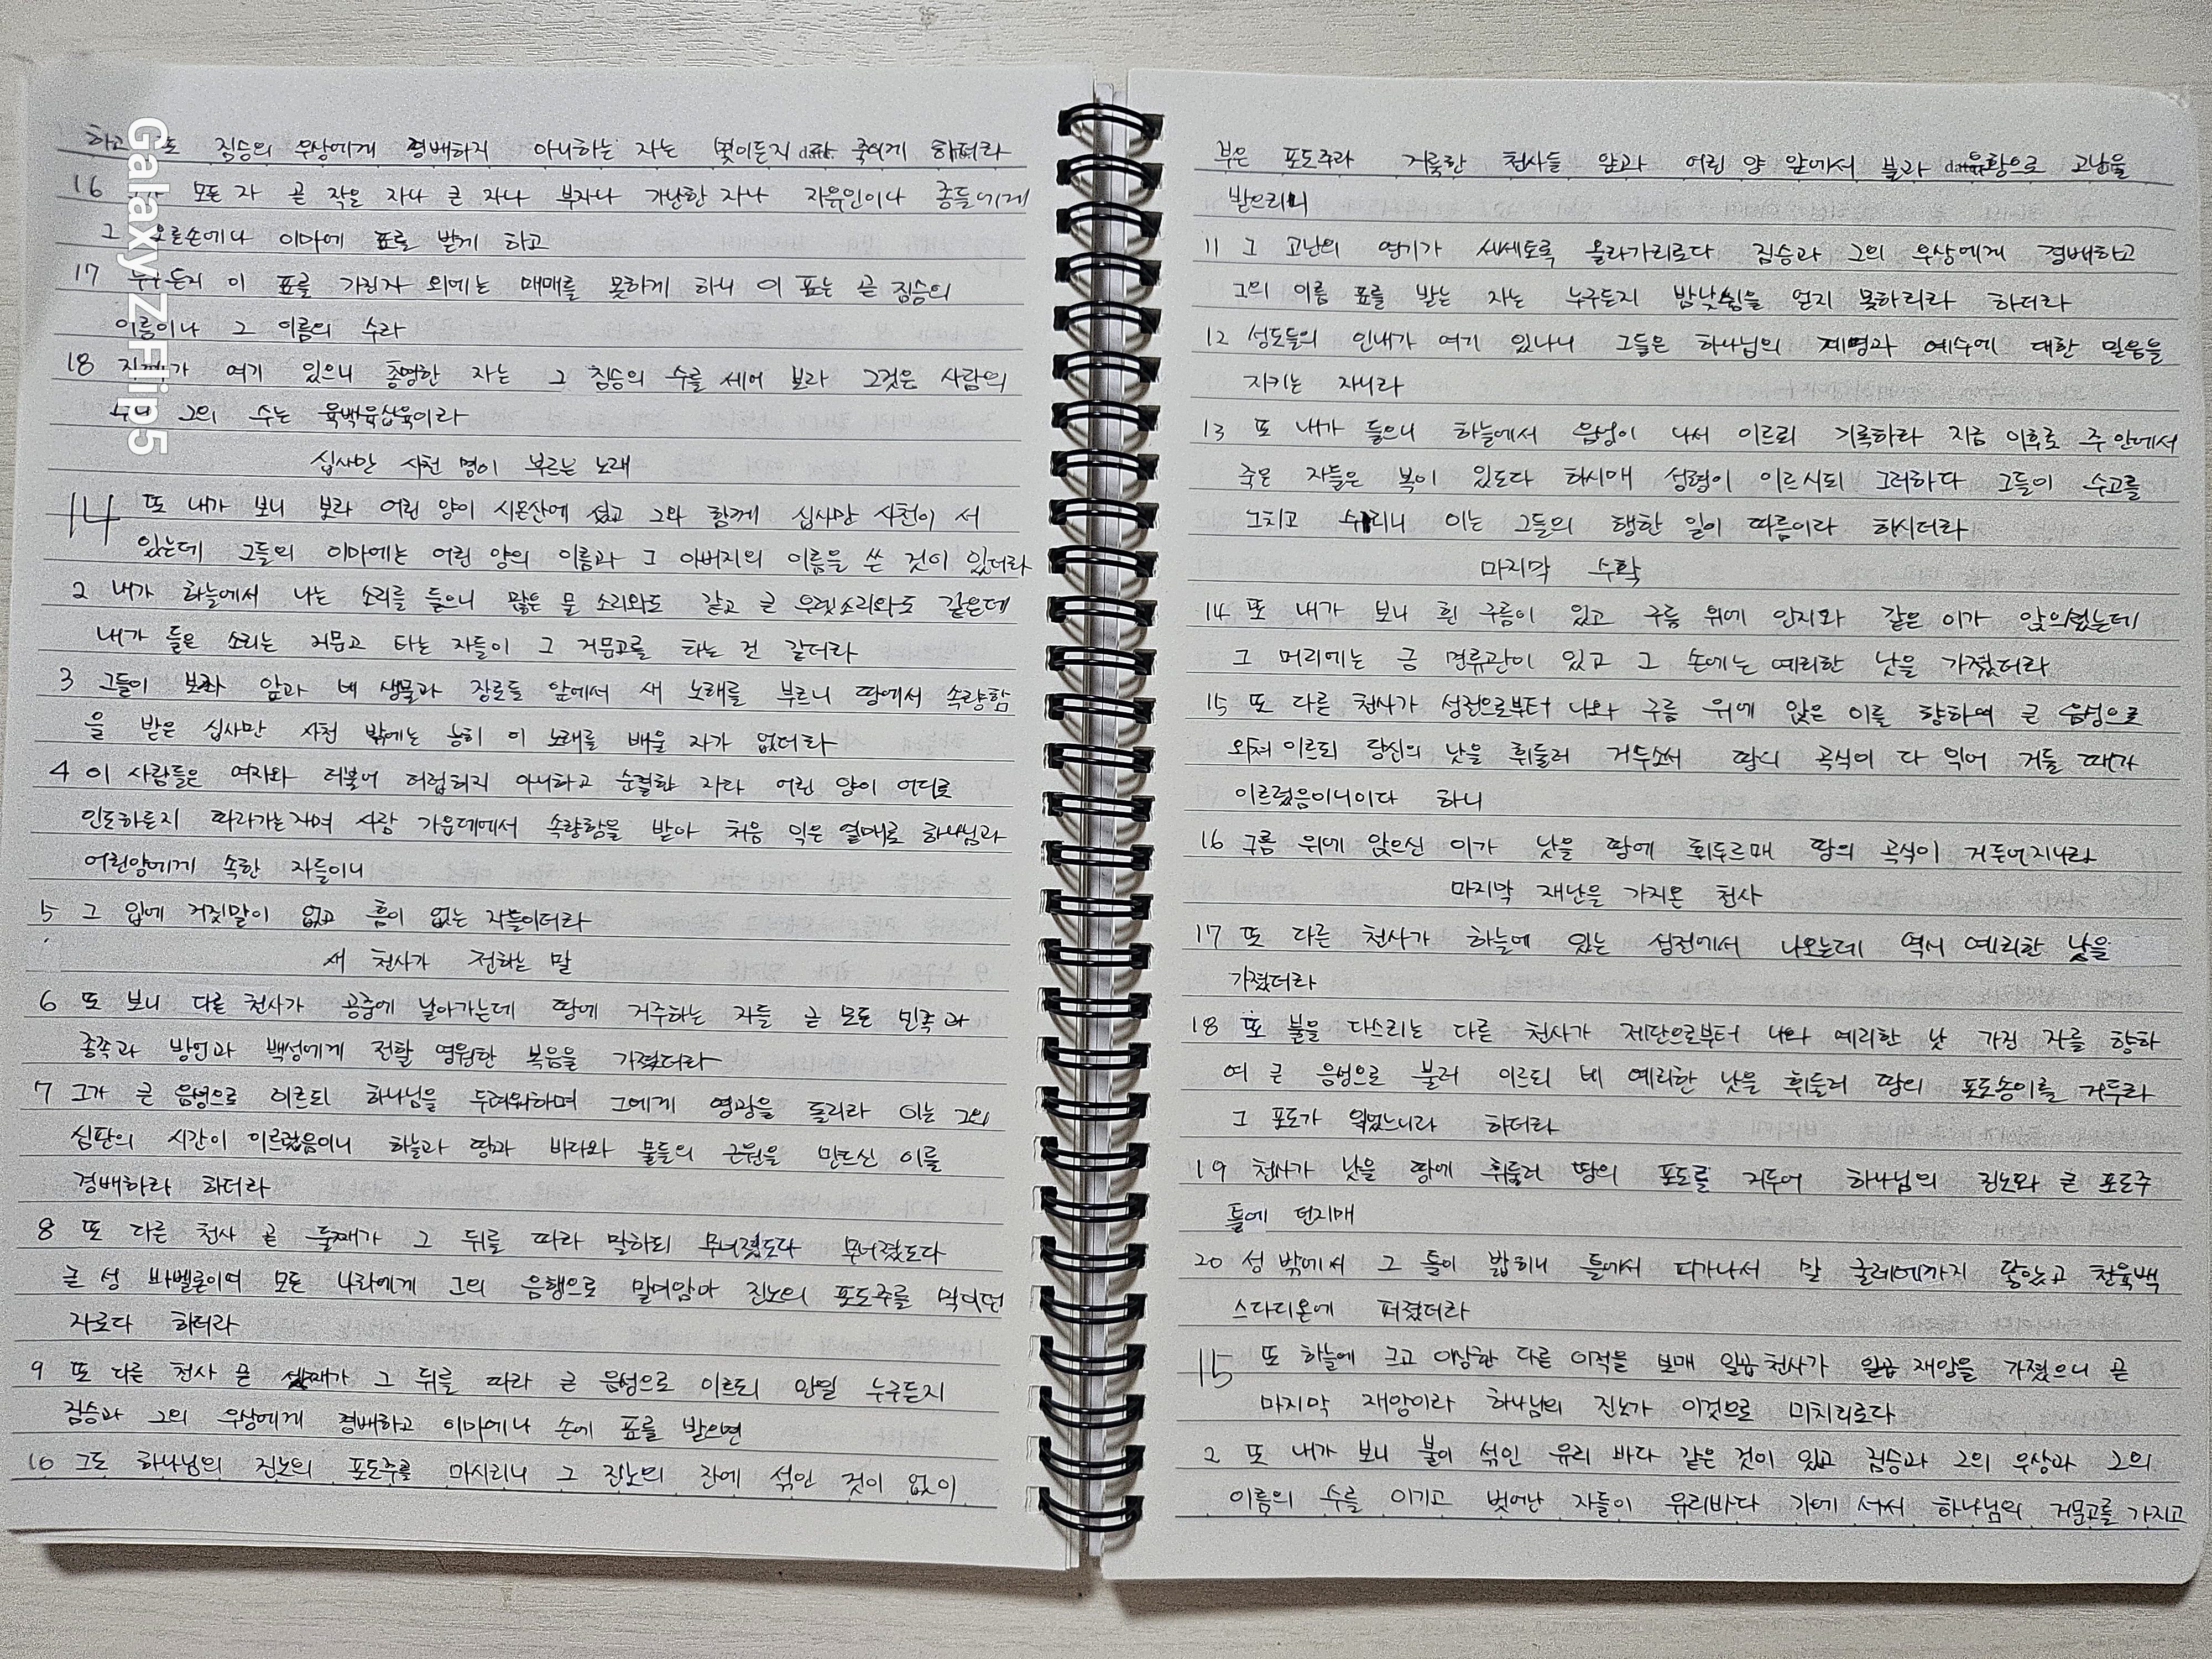 GalaxyZFlip5
하고 또 짐승의 우상에게 경배하지 아니하는 자는 몇이든지 다 죽이게 하더라
16 모든 자 곧 작은 자나 큰 자나 부자나 가난한 자나 자유인이나 종들에게
그 오른손에나 이마에 표를 받게 하고
17 누구든지 이 표를 가진자 외에는 매매를 못하게 하니 이 표는 곧 짐승의
이름이나 그 이름의 수라
18 지혜가 여기 있으니 총명한 자는 그 짐승의 수를 세어 보라 그것은 사람의
수니 그의 수는 육백육십육이라
십사만 사천 명이 부르는 노래
14 또 내가 보니 보라 어린 양이 시온산에 섰고 그와 함께 십사만 사천이 서
있는데 그들의 이마에는 어린 양의 이름과 그 아버지의 이름을 쓴 것이 있더라
2 내가 하늘에서 나는 소리를 들으니 많은 물 소리와도 같고 큰 우렛소리와도 같은데
내가 들은 소리는 거문고 타는 자들이 그 거문고를 타는 것 같더라
3 그들이 보좌 앞과 네 생물과 장로들 앞에서 새 노래를 부르니 땅에서 속량함
을 받은 십사만 사천 밖에는 능히 이 노래를 배울 자가 없더라
4 이 사람들은 여자와 더불어 더럽히지 아니하고 순결한 자라 어린 양이 어디로
인도하든지 따라가는 자며 사람 가운데에서 속량함을 받아 처음 익은 열매로 하나님과
어린양에게 속한 자들이니
5 그 입에 거짓말이 없고 흠이 없는 자들이더라
세 천사가 전하는 말
6 또 보니 다른 천사가 공중에 날아가는데 땅에 거주하는 자들 곧 모든 민족과
종족과 방언과 백성에게 전할 영원한 복음을 가졌더라
7 그가 큰 음성으로 이르되 하나님을 두려워하며 그에게 영광을 돌리라 이는 그의
심판의 시간이 이르렀음이니 하늘과 땅과 바다와 물들의 근원을 만드신 이를
경배하라 하더라
8 또 다른 천사 곧 둘째가 그 뒤를 따라 말하되 무너졌도다 무너졌도다
큰 성 바벨론이여 모든 나라에게 그의 음행으로 말미암아 진노의 포도주를 먹이던
자로다 하더라
9 또 다른 천사 곧 셋째가 그 뒤를 따라 큰 음성으로 이르되 만일 누구든지
짐승과 그의 우상에게 경배하고 이마에나 손에 표를 받으면
10 그도 하나님의 진노의 포도주를 마시리니 그 진노의 잔에 섞인 것이 없이
부은 포도주라 거룩한 천사들 앞과 어린 양 앞에서 불과 유황으로 고난을
받으리니
11 그 고난의 연기가 세세토록 올라가리로다 짐승과 그의 우상에게 경배하고
그의 이름 표를 받는 자는 누구든지 밤낮 쉼을 얻지 못하리라 하더라
12 성도들의 인내가 여기 있나니 그들은 하나님의 계명과 예수에 대한 믿음을
지키는 자니라
13 또 내가 들으니 하늘에서 음성이 나서 이르되 기록하라 지금 이후로 주 안에서
죽은 자들은 복이 있도다 하시매 성령이 이르시되 그러하다 그들이 수고를
그치고 쉬리니 이는 그들의 행한 일이 따름이라 하시더라
마지막 수확
14 또 내가 보니 흰 구름이 있고 구름 위에 인자와 같은 이가 앉으셨는데
그 머리에는 금 면류관이 있고 그 손에는 예리한 낫을 가졌더라
15 또 다른 천사가 성전으로부터 나와 구름 위에 앉은 이를 향하여 큰 음성으로
외쳐 이르되 당신의 낫을 휘둘러 거두소서 땅의 곡식이 다 익어 거둘 때가
이르렀음이니이다 하니
16 구름 위에 앉으신 이가 낫을 땅에 휘두르매 땅의 곡식이 거두어지니라
마지막 재난을 가지온 천사
17 또 다른 천사가 하늘에 있는 성전에서 나오는데 역시 예리한 낫을
가졌더라
18 또 불을 다스리는 다른 천사가 제단으로부터 나와 예리한 낫 가진 자를 향하
여 큰 음성으로 불러 이르되 네 예리한 낫을 휘둘러 땅의 포도송이를 거두라
그 포도가 익었느니라 하더라
19 천사가 낫을 땅에 휘둘러 땅의 포도를 거두어 하나님의 진노의 큰 포도주
틀에 던지매
20 성 밖에서 그 틀이 밟히니 틀에서 피가나서 말 굴레에까지 닿았고 천육백
스다디온에 퍼졌더라
15 또 하늘에 크고 이상한 다른 이적을 보매 일곱 천사가 일곱 재앙을 가졌으니 곧
마지막 재앙이라 하나님의 진노가 이것으로 마치리로다
2 또 내가 보니 불이 섞인 유리 바다 같은 것이 있고 짐승과 그의 우상과 그의
이름의 수를 이기고 벗어난 자들이 유리바다 가에 서서 하나님의 거문고를 가지고